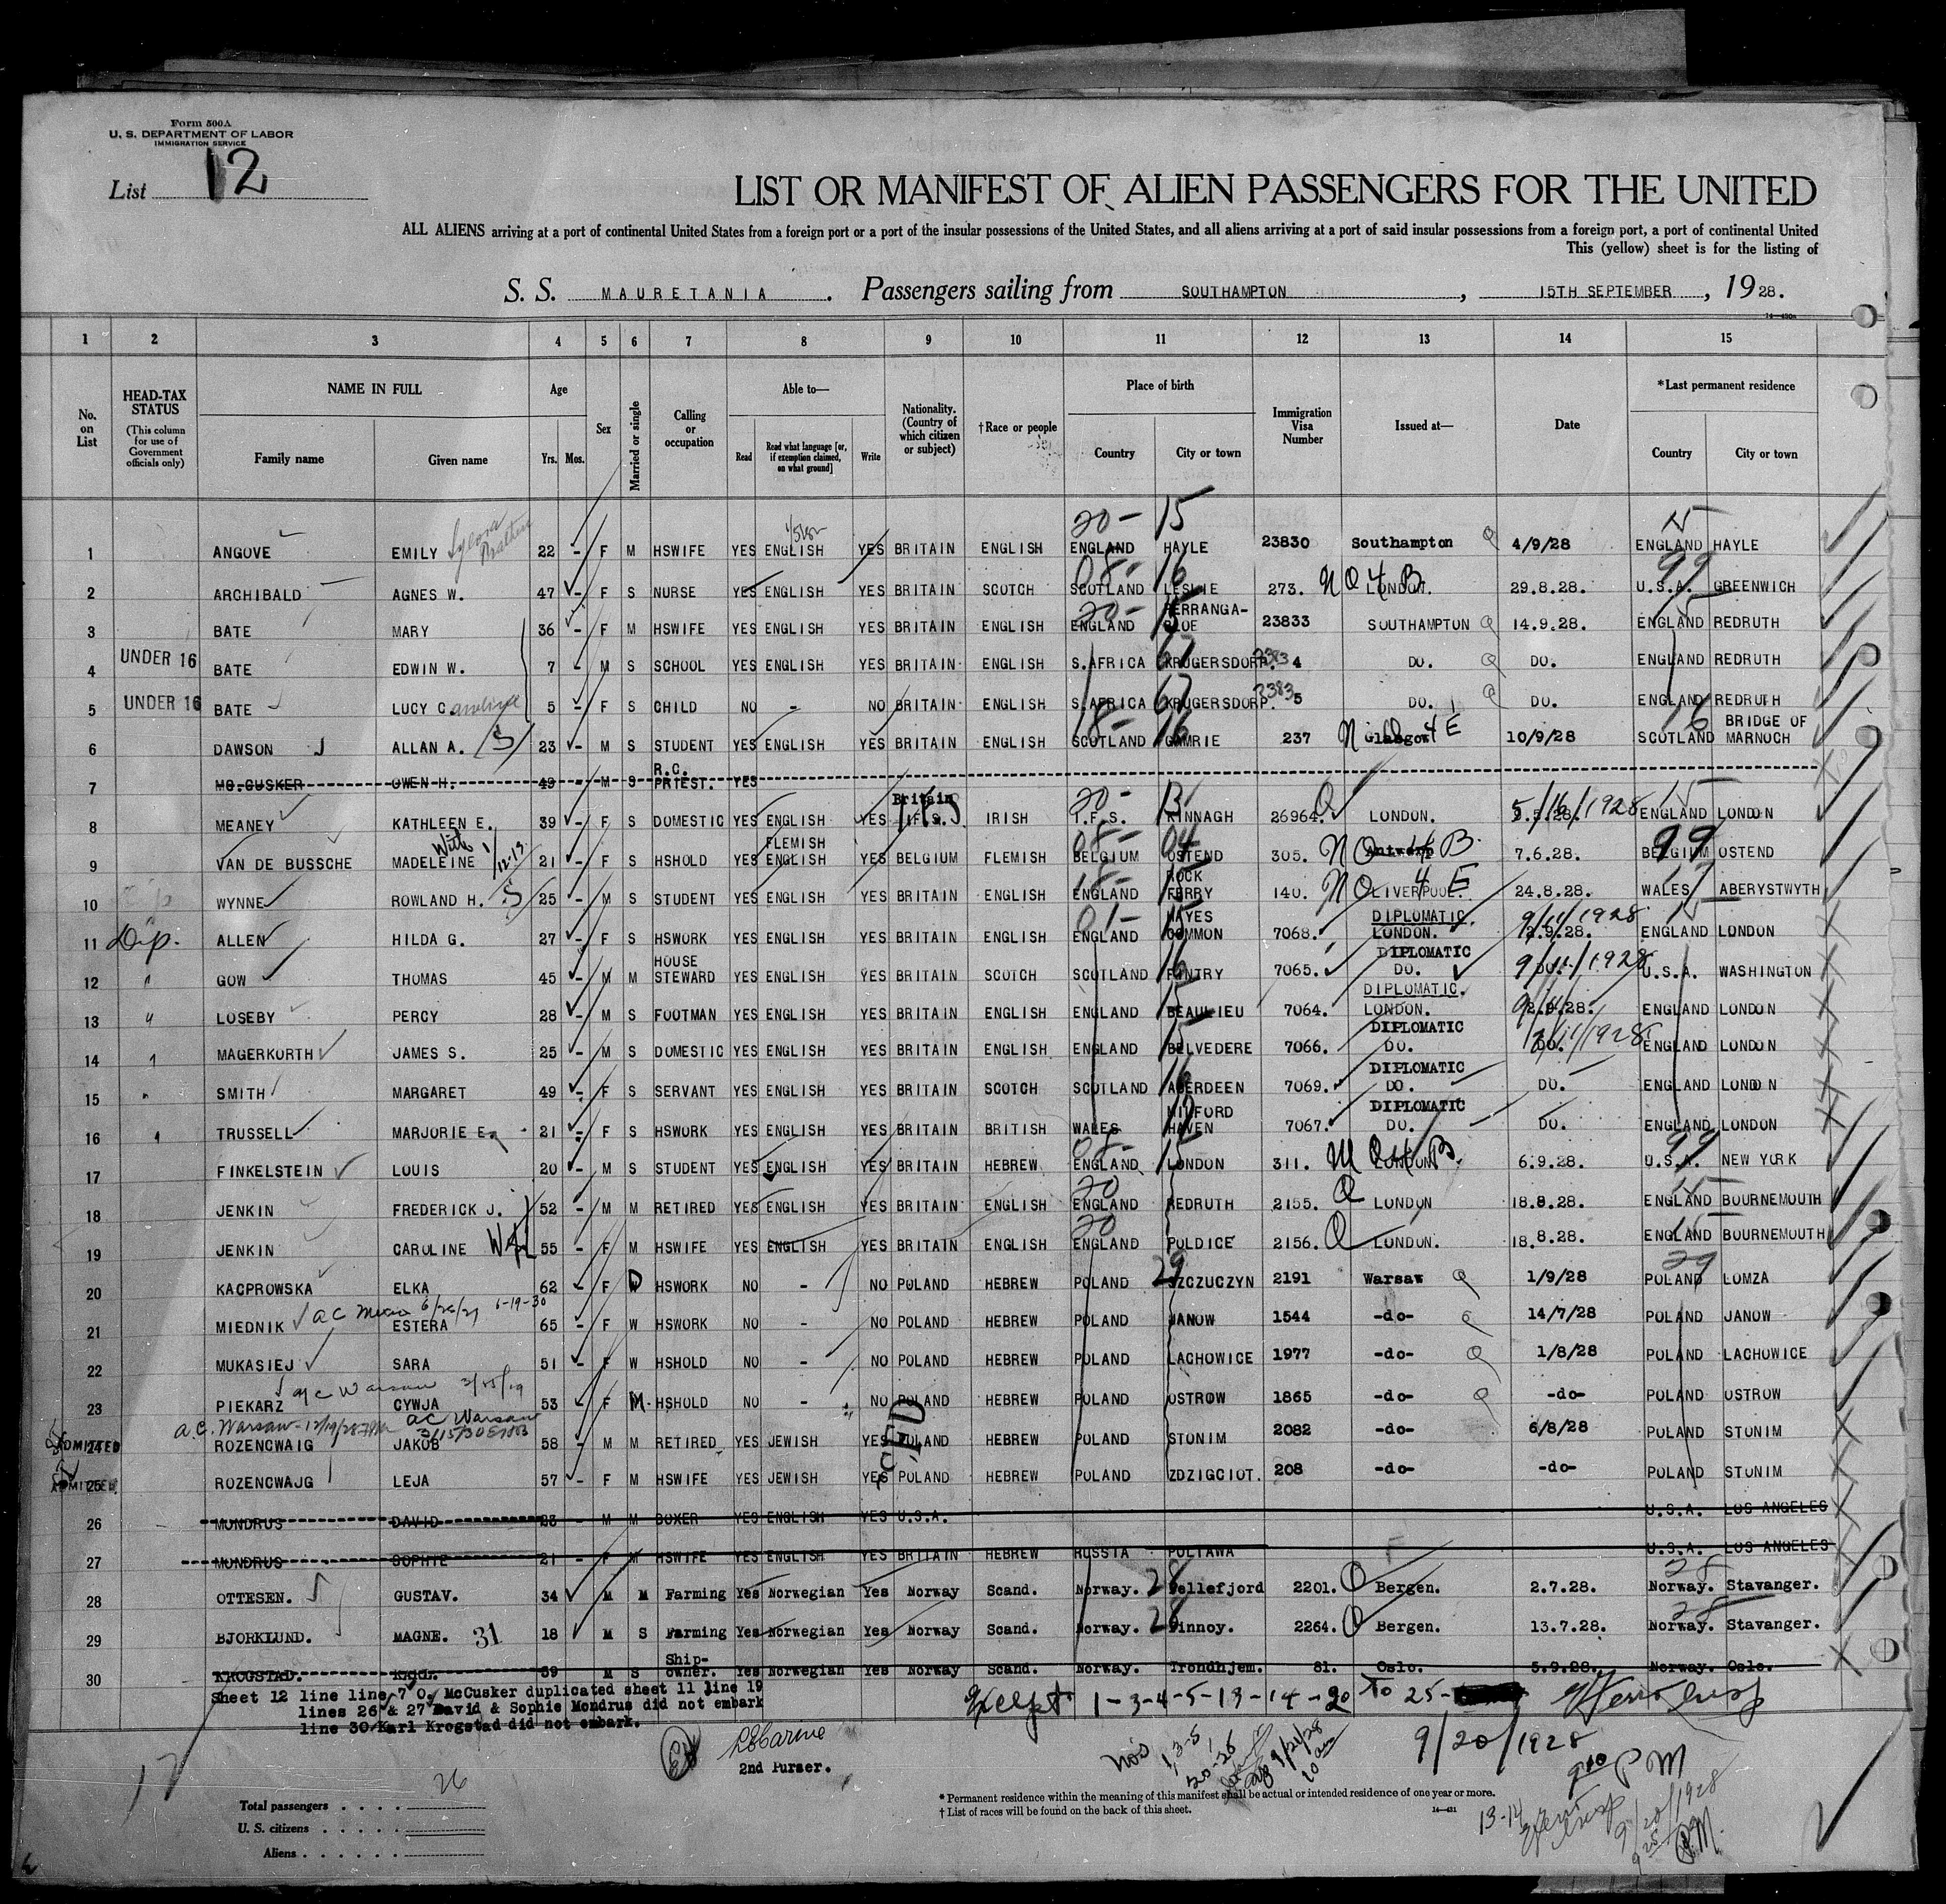 Form 500A
U. S. DEPARTMENT OF LABOR
IMMIGRATION SERVICE
List 12
LIST OR MANIFEST OF ALIEN PASSENGERS FOR THE UNITED
ALL ALIENS arriving at a port of continental United States from a foreign port or a port of the insular possessions of the United States, and all aliens arriving at a port of said insular possessions from a foreign port, a port of continental United
This (yellow) sheet is for the listing of
S. S. MAURETANIA. Passengers sailing from SOUTHAMPTON, 15TH SEPTEMBER, 1928.
1 2 3 4 5 6 7 8 9 10 11 12 13 14 15
No. on List
HEAD-TAX STATUS (This column for use of Government officials only)
NAME IN FULL Family name Given name
Age Yrs. Mos.
Sex
Married or single
Calling or occupation
Able to— Read Read what language [or, if exemption claimed, on what ground] Write
Nationality. (Country of which citizen or subject)
†Race or people
Place of birth Country City or town
Immigration Visa Number
Issued at—
Date
*Last permanent residence Country City or town
20- 15 15
1 ANGOVE EMILY 22 - F M HSWIFE YES ENGLISH YES BRITAIN ENGLISH ENGLAND HAYLE 23830 Southampton Q 4/9/28 ENGLAND HAYLE
08- 16 99
2 ARCHIBALD AGNES W. 47 - F S NURSE YES ENGLISH YES BRITAIN SCOTCH SCOTLAND LESLIE 273. NQ4B LONDON. 29.8.28. U.S.A. GREENWICH
3 BATE MARY 36 - F M HSWIFE YES ENGLISH YES BRITAIN ENGLISH 20- ENGLAND 15 23833 SOUTHAMPTON Q 14.9.28. ENGLAND REDRUTH
4 UNDER 16 BATE EDWIN W. 7 - M S SCHOOL YES ENGLISH YES BRITAIN ENGLISH S.AFRICA KRUGERSDORP. 23834 DO. Q DO. ENGLAND REDRUTH
5 UNDER 16 BATE LUCY Caroline 5 - F S CHILD NO - NO BRITAIN ENGLISH S.AFRICA KRUGERSDORP. 23835 DO. Q DO. ENGLAND REDRUTH
6 DAWSON ALLAN A. /S/ 23 - M S STUDENT YES ENGLISH YES BRITAIN ENGLISH 18- SCOTLAND 16 GAMRIE 237 Glasgow 4E 10/9/28 SCOTLAND 16 BRIDGE OF MARNOCH
7 MC.CUSKER OWEN H. 49 - M S R.C. PRIEST. YES
8 MEANEY KATHLEEN E. 39 - F S DOMESTIC YES ENGLISH YES Britain I.F.S. IRISH 20- I.F.S. KINNAGH 26964. Q LONDON. 5/16/1928 15 ENGLAND LONDON
9 VAN DE BUSSCHE MADELEINE With 12-13 21 - F S HSHOLD YES FLEMISH ENGLISH YES BELGIUM FLEMISH 08- BELGIUM 04 OSTEND 305. NQ4B Antwerp 7.6.28. 99 BELGIUM OSTEND
10 WYNNE ROWLAND H. /S/ 25 - M S STUDENT YES ENGLISH YES BRITAIN ENGLISH 18- ENGLAND ROCK FERRY 140. NQ4E LIVERPOOL 24.8.28. WALES ABERYSTWYTH
11 Dip. ALLEN HILDA G. 27 - F S HSWORK YES ENGLISH YES BRITAIN ENGLISH 01- ENGLAND 15 HAYES COMMON 7068. DIPLOMATIC. LONDON. 9/11/1928 15 ENGLAND LONDON
12 " GOW THOMAS 45 - M M HOUSE STEWARD YES ENGLISH YES BRITAIN SCOTCH SCOTLAND 16 7065. DIPLOMATIC DO. 9/11/1928 U.S.A. WASHINGTON
13 " LOSEBY PERCY 28 - M S FOOTMAN YES ENGLISH YES BRITAIN ENGLISH ENGLAND 15 BEAULIEU 7064. DIPLOMATIC. LONDON. ENGLAND LONDON
14 " MAGERKORTH JAMES S. 25 - M S DOMESTIC YES ENGLISH YES BRITAIN ENGLISH ENGLAND 15 BELVEDERE 7066. DIPLOMATIC DO. ENGLAND LONDON
15 " SMITH MARGARET 49 - F S SERVANT YES ENGLISH YES BRITAIN SCOTCH SCOTLAND 16 ABERDEEN 7069. DIPLOMATIC DO. DO. ENGLAND LONDON
16 " TRUSSELL MARJORIE E. 21 - F S HSWORK YES ENGLISH YES BRITAIN BRITISH WALES MILFORD HAVEN 7067. DIPLOMATIC DO. DO. ENGLAND LONDON
17 FINKELSTEIN LOUIS 20 - M S STUDENT YES ENGLISH YES BRITAIN HEBREW 08- ENGLAND 15 LONDON 311. LONDON. 6.9.28. 99 U.S.A. NEW YORK
18 JENKIN FREDERICK J. 52 - M M RETIRED YES ENGLISH YES BRITAIN ENGLISH 20 ENGLAND REDRUTH 2155. Q LONDON 18.8.28. 15 ENGLAND BOURNEMOUTH
19 JENKIN CAROLINE 55 - F M HSWIFE YES ENGLISH YES BRITAIN ENGLISH 20 ENGLAND POLDICE 2156. Q LONDON. 18.8.28. 15 ENGLAND BOURNEMOUTH
20 KACPROWSKA ELKA 62 - F W HSWORK NO - NO POLAND HEBREW POLAND 29 SZCZUCZYN 2191 Warsaw Q 1/9/28 29 POLAND LOMZA
21 MIEDNIK ESTERA 65 - F W HSWORK NO - NO POLAND HEBREW POLAND JANOW 1544 -do- Q 14/7/28 POLAND JANOW
22 MUKASIEJ SARA 51 - F W HSHOLD NO - NO POLAND HEBREW POLAND LACHOWICE 1977 -do- Q 1/8/28 POLAND LACHOWICE
23 PIEKARZ CYWJA 53 - F M HSHOLD NO - NO POLAND HEBREW POLAND OSTROW 1865 -do- Q -do- POLAND OSTROW
A.C. Warsaw AC Warsaw
24 ADMITTED ROZENCWAIG JAKOB 58 - M M RETIRED YES JEWISH YES POLAND HEBREW POLAND STONIM 2082 -do- 6/8/28 POLAND STONIM
25 ADMITTED ROZENCWAJG LEJA 57 - F M HSWIFE YES JEWISH YES POLAND HEBREW POLAND ZDZIGCIOT. 208 -do- -do- POLAND STONIM
26 MUNDRUS DAVID 23 - M M BOXER YES ENGLISH YES U.S.A. U.S.A. LOS ANGELES
27 MUNDRUS SOPHIE 21 - F M HSWIFE YES ENGLISH YES BRITAIN HEBREW RUSSIA POLTAWA U.S.A. LOS ANGELES
28 OTTESEN. GUSTAV. 34 M M Farming Yes Norwegian Yes Norway Scand. Norway. 28 2201. Q Bergen. 2.7.28. 28 Norway. Stavanger.
29 BJORKLUND. MAGNE. 31 18 M S Farming Yes Norwegian Yes Norway Scand. Norway. 28 2264. Q Bergen. 13.7.28. 28 Norway. Stavanger.
30 KROGSTAD. 39 M S Ship-owner. Yes Norwegian Yes Norway Scand. Norway. Trondhjem. 81. Oslo. 5.9.28. Norway. Oslo.
Sheet 12 line line 7 O. McCusker duplicated sheet 11 line 19
lines 26 & 27 David & Sophie Mondrus did not embark
line 30 Karl Krogstad did not embark.
Except 1-3-4-5-13-14-20 To 25-
2nd Purser.
9/20/1928
PM
Nos 1, 3-5, 20-25
13-14
9/20/1928
PM.
Total passengers . . . . 26
U. S. citizens . . . . .
Aliens . . . . . .
* Permanent residence within the meaning of this manifest shall be actual or intended residence of one year or more.
† List of races will be found on the back of this sheet.
14—431